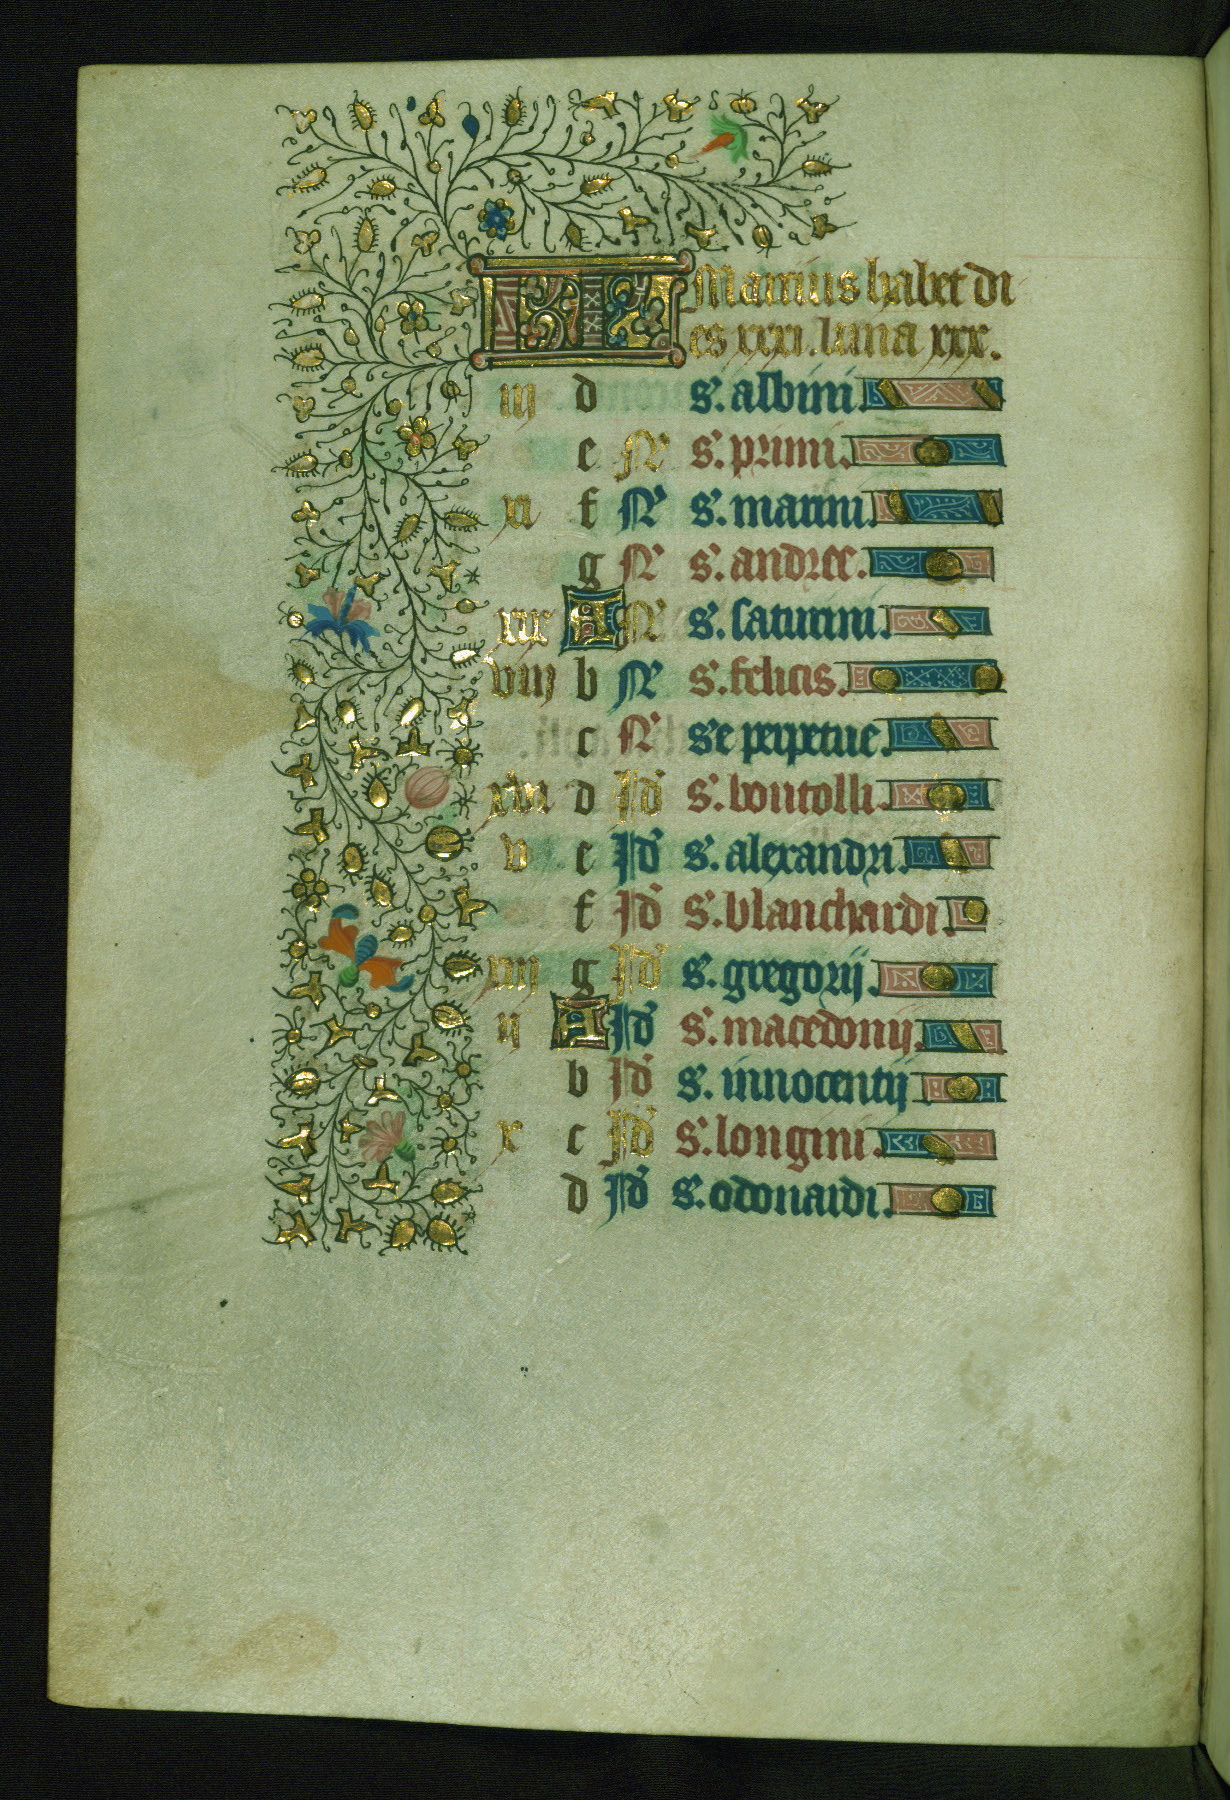 KL Marcius habet di
es xxxi. luna xxx.
iii d s. albini.
e N s. primi.
xi f N s. marini.
g N s. andree.
xix A N s. saturini.
viii b N s. felicis.
c N se perpetue.
xvi d Id s. bontolli.
v e Id s. alexandri.
f Id s. blanchardi.
xiii g Id s. gregorij.
ii A Id s. macedonij.
b Id s. innocentij
x c Id s. longini.
d Id s. odouardi.